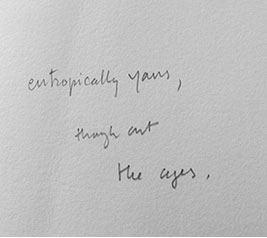 entropically yours,
though out
the ages.